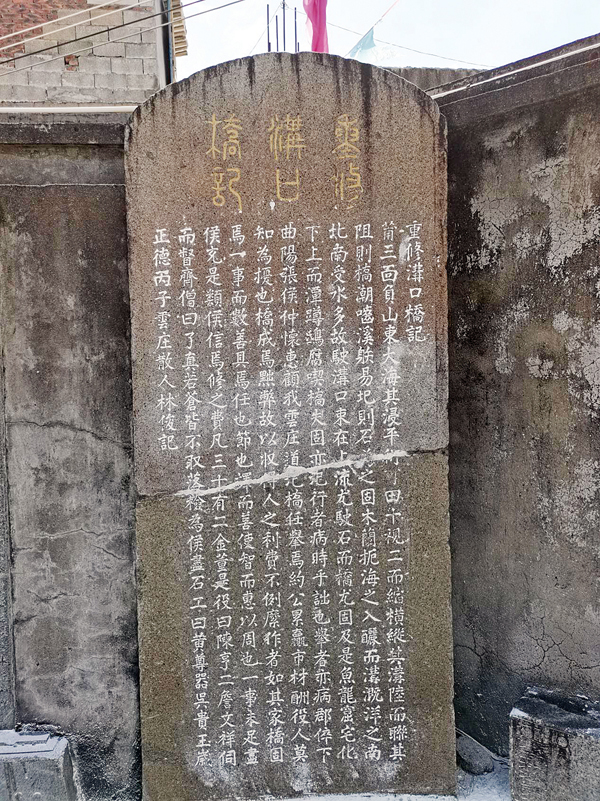 重修
溝口
橋記
重修溝口橋記
莆三面負山東大海其漫平
田下視二而縮橫縱其溝陸而聯其
阻則橋潮嘻溪躲易圯則石
之固木蘭扼海之入釃而溝溉洋之南
北南受水多故駛溝口東在上流尤駛石而橋尤固及是魚龍窟宅化
下上而潭
橋失固亦圯行者病時乎詘也舉者亦病郡倅下
曲陽張侯仲懷惠顧我雲庄道圯橋任舉焉約公累羸市材酬役人莫
知為擾也橋成焉點弊故以收
人之利費不例縻作者如其家橋固
焉一事而數善具焉任也節也擇而善使智而惠以周也一事未足盡
侯充是類侯信焉修之費凡三十有二金萱是役曰陳亨二詹文祥伺
而督齊僧曰了真若蒼皆不取落橙為侯盡石工曰黃尊器吳貴玉崴
正德丙子雲庄散人林俊記